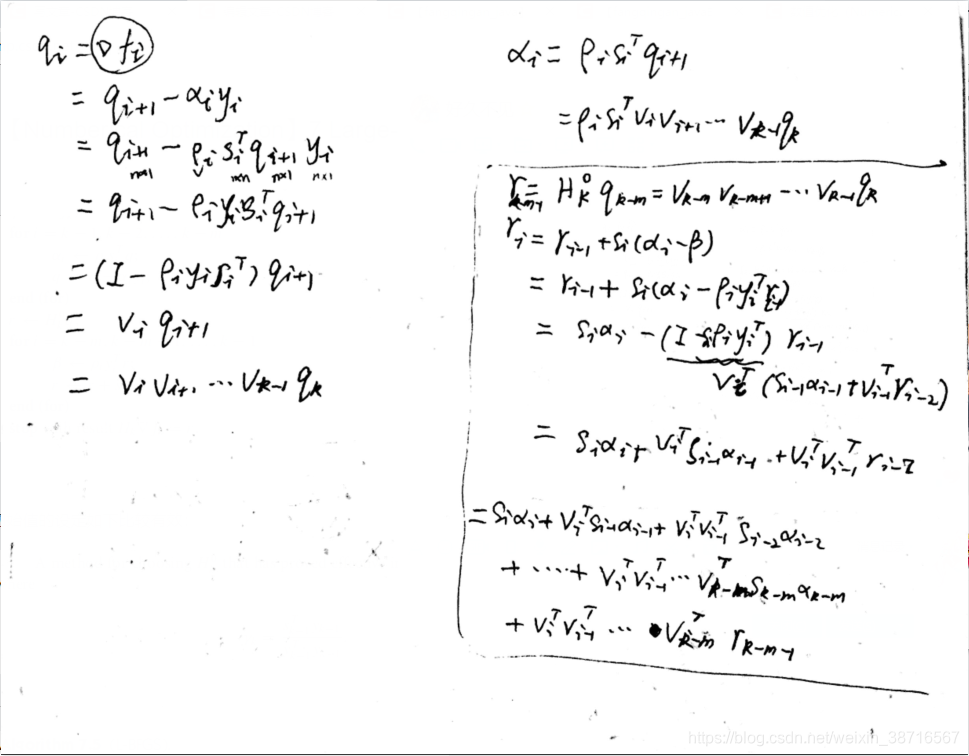 qᵢ = ∇fᵢ
= qᵢ₊₁ − αᵢyᵢ
= qᵢ₊₁ − ρᵢ sᵢᵀ qᵢ₊₁ yᵢ
n×1 n×1 n×1
= qᵢ₊₁ − ρᵢyᵢsᵢᵀqᵢ₊₁
= (I − ρᵢyᵢsᵢᵀ) qᵢ₊₁
= Vᵢ qᵢ₊₁
= Vᵢ Vᵢ₊₁ ⋯ V_{k-1} q_k
αᵢ = ρᵢ sᵢᵀ qᵢ₊₁
= ρᵢ sᵢᵀ Vᵢ Vᵢ₊₁ ⋯ V_{k-1} q_k
r_{k-m-1} = H_k^0 q_{k-m} = V_{k-m} V_{k-m+1} ⋯ V_{k-1} q_k
rᵢ = rᵢ₋₁ + sᵢ(αᵢ − β)
= rᵢ₋₁ + sᵢ(αᵢ − ρᵢyᵢᵀrᵢ₋₁)
= sᵢαᵢ − (I − sᵢρᵢyᵢᵀ) rᵢ₋₁
Vᵢᵀ (sᵢ₋₁αᵢ₋₁ + Vᵢ₋₁ᵀ rᵢ₋₂)
= sᵢαᵢ + Vᵢᵀ sᵢ₋₁αᵢ₋₁ + Vᵢᵀ Vᵢ₋₁ᵀ rᵢ₋₂
= sᵢαᵢ + Vᵢᵀ sᵢ₋₁αᵢ₋₁ + Vᵢᵀ Vᵢ₋₁ᵀ sᵢ₋₂αᵢ₋₂
+ ⋯⋯ + Vᵢᵀ Vᵢ₋₁ᵀ ⋯ V_{k-m}ᵀ s_{k-m} α_{k-m}
+ Vᵢᵀ Vᵢ₋₁ᵀ ⋯ V_{k-m}ᵀ r_{k-m-1}
https://blog.csdn.net/weixin_38716567